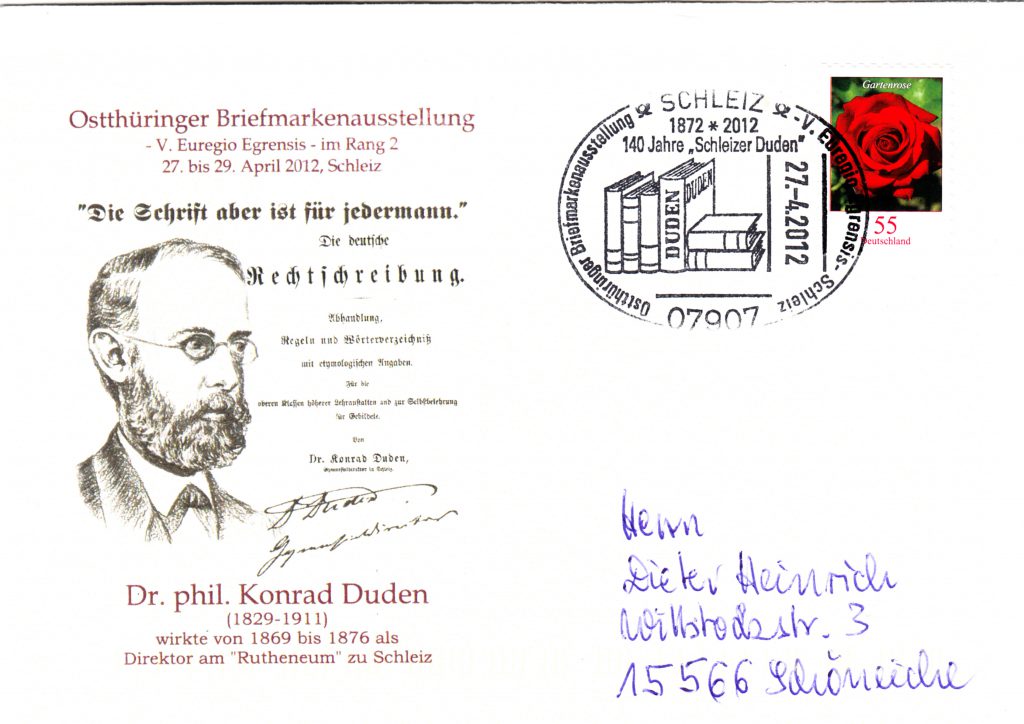 Ostthüringer Briefmarkenausstellung
- V. Euregio Egrensis - im Rang 2
27. bis 29. April 2012, Schleiz
"Die Schrift aber ist für jedermann."
Die deutsche
Rechtschreibung.
Abhandlung,
Regeln und Wörterverzeichniß
mit etymologischen Angaben.
Für die
oberen Klassen höherer Lehranstalten und zur Selbstbelehrung
für Gebildete.
Von
Dr. Konrad Duden,
Gymnasialdirektor in Schleiz.
Dr Duden
Gymnasialdirektor
Dr. phil. Konrad Duden
(1829-1911)
wirkte von 1869 bis 1876 als
Direktor am "Rutheneum" zu Schleiz
SCHLEIZ
1872 * 2012
140 Jahre „Schleizer Duden"
Ostthüringer Briefmarkenausstellung
-V. Euregio Egrensis- Schleiz
DUDEN
DUDEN
27.-4.2012
07907
Gartenrose
55
Deutschland
Herrn
Dieter Heinrich
Wittstockstr. 3
15566 Schöneiche